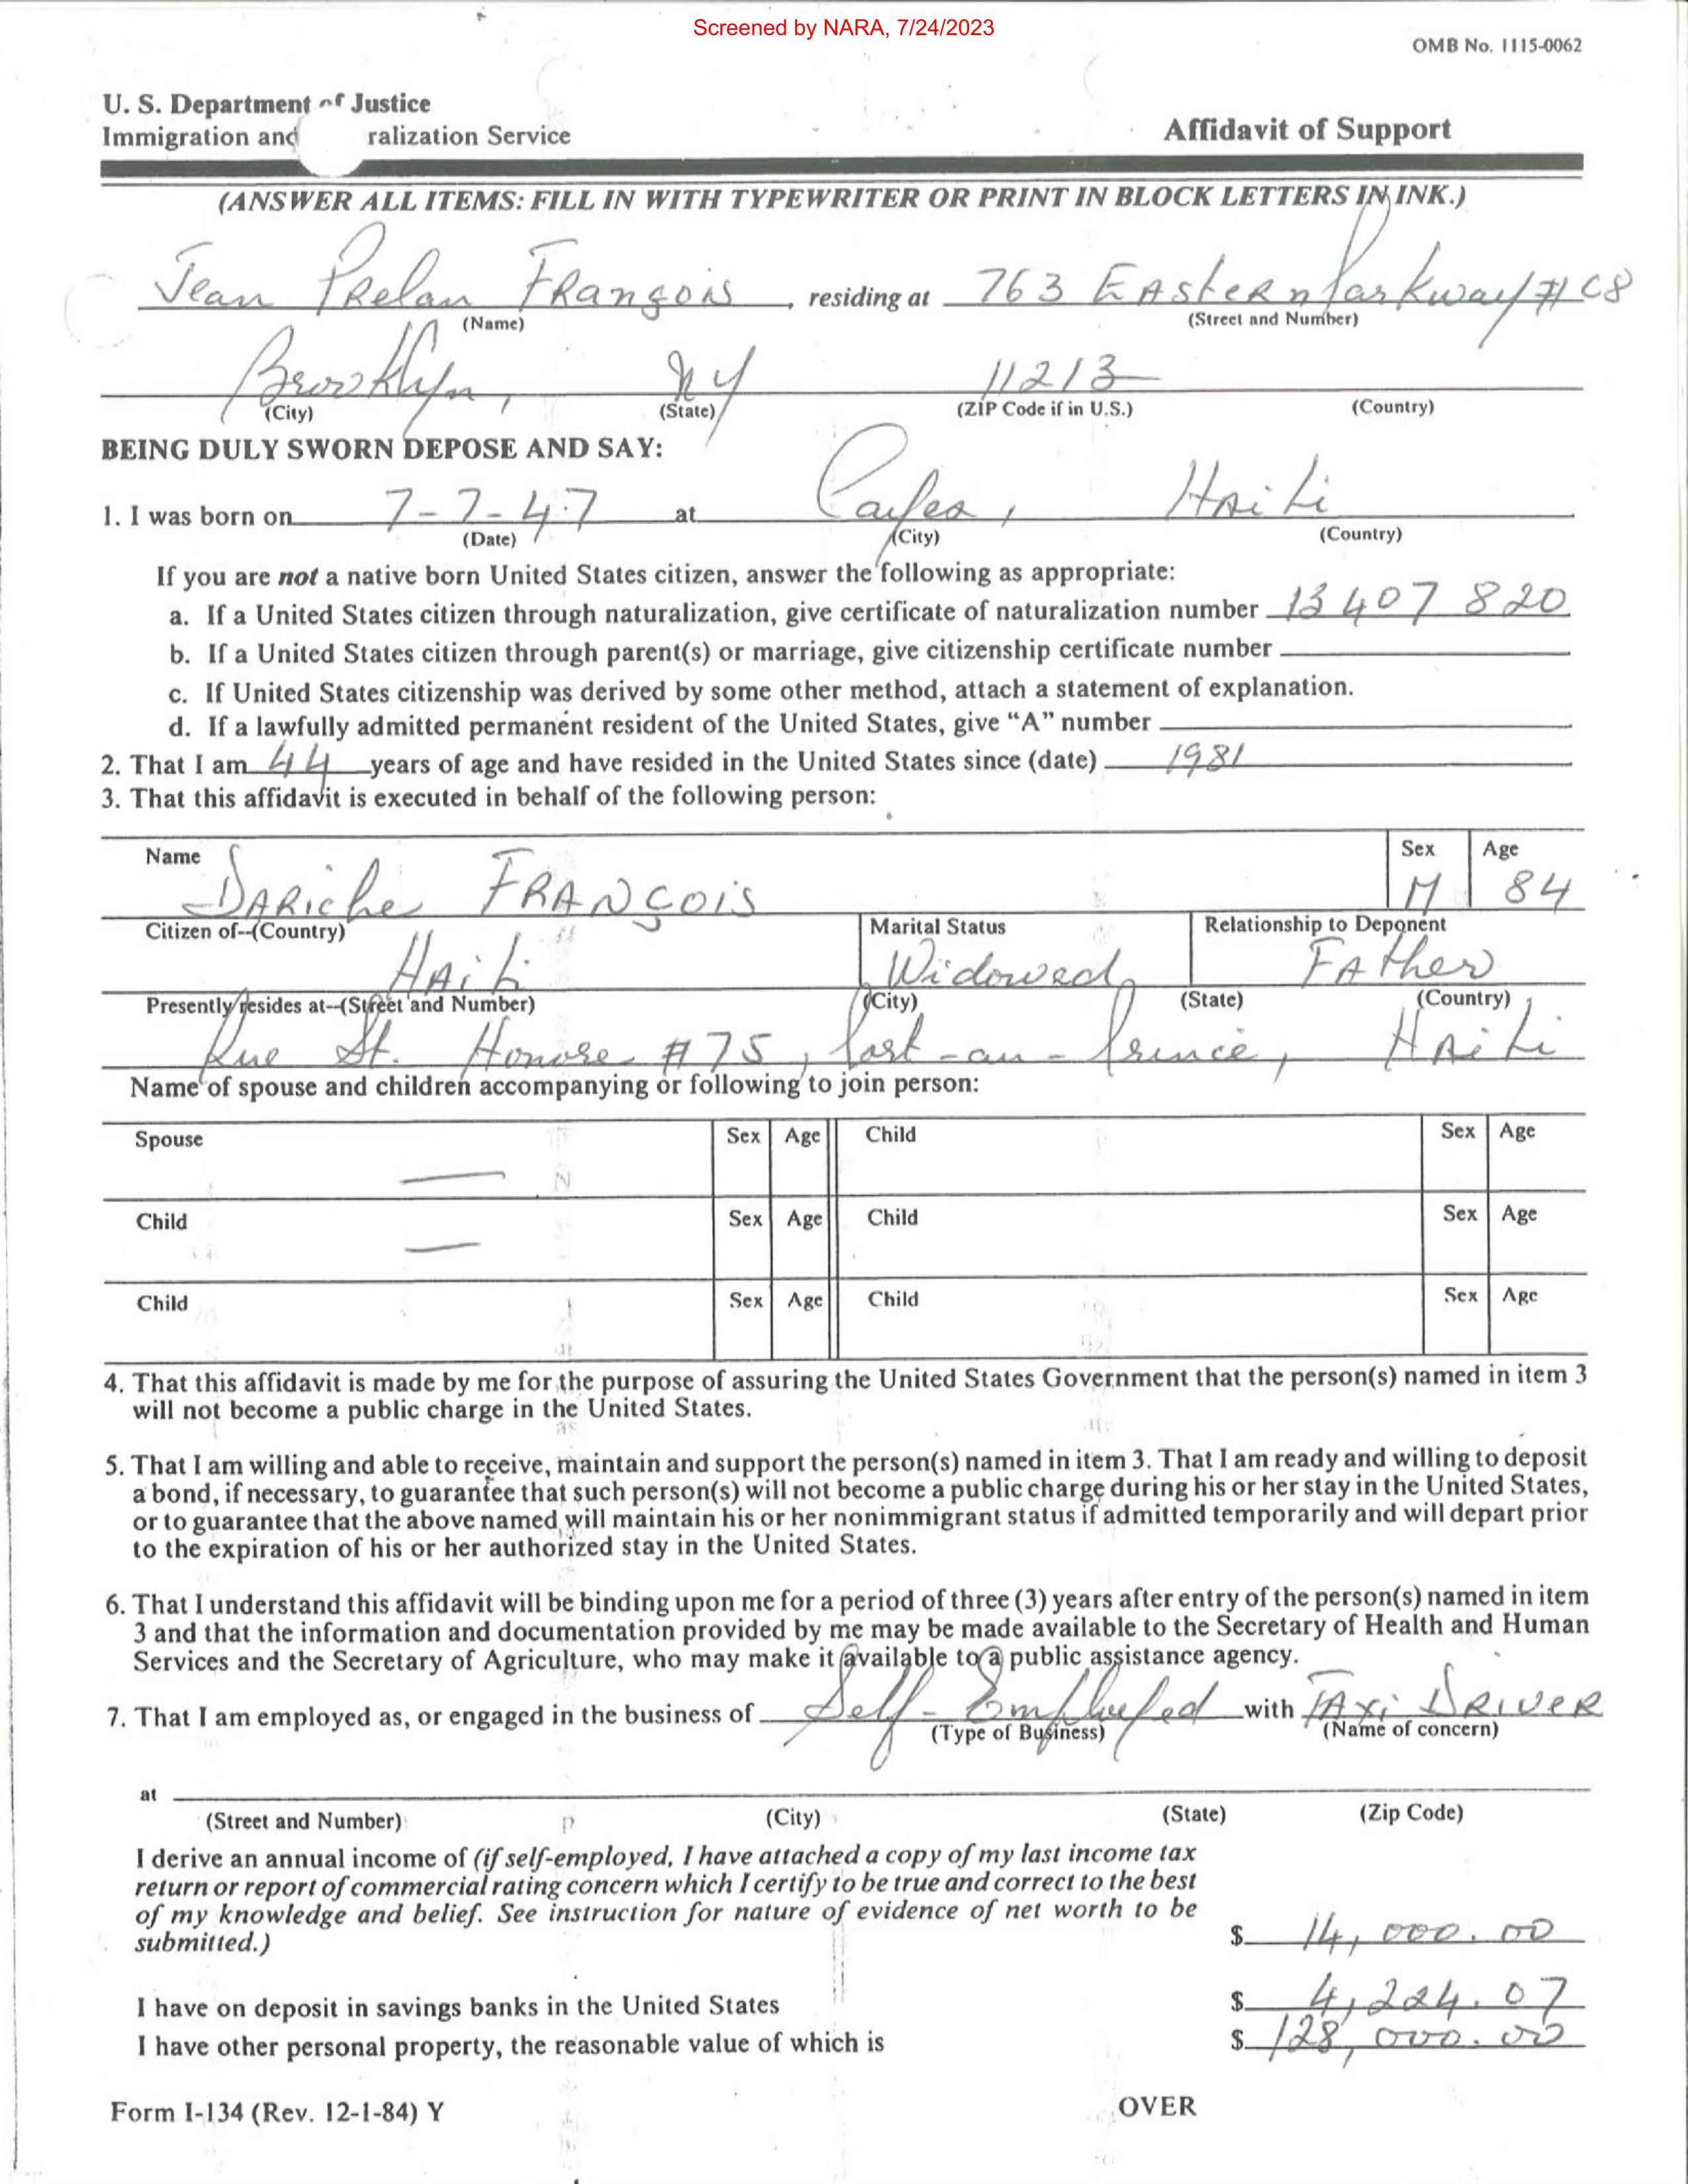 Screened by NARA, 7/24/2023
OMB No. 1115-0062
U. S. Department of Justice
Immigration and ralization Service
Affidavit of Support
(ANSWER ALL ITEMS: FILL IN WITH TYPEWRITER OR PRINT IN BLOCK LETTERS IN INK.)
Jean PRelan FRançois, residing at 763 EAsteRn Parkway # C8
(Name) (Street and Number)
Brooklyn, NY 11213
(City) (State) (ZIP Code if in U.S.) (Country)
BEING DULY SWORN DEPOSE AND SAY:
1. I was born on 7-7-47 at Cayes, HAiti
(Date) (City) (Country)
If you are not a native born United States citizen, answer the following as appropriate:
a. If a United States citizen through naturalization, give certificate of naturalization number 13 407 820
b. If a United States citizen through parent(s) or marriage, give citizenship certificate number
c. If United States citizenship was derived by some other method, attach a statement of explanation.
d. If a lawfully admitted permanent resident of the United States, give “A” number
2. That I am 44 years of age and have resided in the United States since (date) 1981
3. That this affidavit is executed in behalf of the following person:
Name Sex Age
DARiche FRANÇOIS M 84
Citizen of--(Country) Marital Status Relationship to Deponent
HAiti Widowed FAther
Presently resides at--(Street and Number) (City) (State) (Country)
Rue St. Honore # 75, Port-au-Prince, HAiti
Name of spouse and children accompanying or following to join person:
Spouse Sex Age Child Sex Age
—
Child Sex Age Child Sex Age
—
Child Sex Age Child Sex Age
4. That this affidavit is made by me for the purpose of assuring the United States Government that the person(s) named in item 3
will not become a public charge in the United States.
5. That I am willing and able to receive, maintain and support the person(s) named in item 3. That I am ready and willing to deposit
a bond, if necessary, to guarantee that such person(s) will not become a public charge during his or her stay in the United States,
or to guarantee that the above named will maintain his or her nonimmigrant status if admitted temporarily and will depart prior
to the expiration of his or her authorized stay in the United States.
6. That I understand this affidavit will be binding upon me for a period of three (3) years after entry of the person(s) named in item
3 and that the information and documentation provided by me may be made available to the Secretary of Health and Human
Services and the Secretary of Agriculture, who may make it available to a public assistance agency.
7. That I am employed as, or engaged in the business of Self-Employed with TAxi DRIVER
(Type of Business) (Name of concern)
at
(Street and Number) (City) (State) (Zip Code)
I derive an annual income of (if self-employed, I have attached a copy of my last income tax
return or report of commercial rating concern which I certify to be true and correct to the best
of my knowledge and belief. See instruction for nature of evidence of net worth to be
submitted.) $ 14,000.00
I have on deposit in savings banks in the United States $ 4,224.07
I have other personal property, the reasonable value of which is $ 128,000.00
Form I-134 (Rev. 12-1-84) Y
OVER